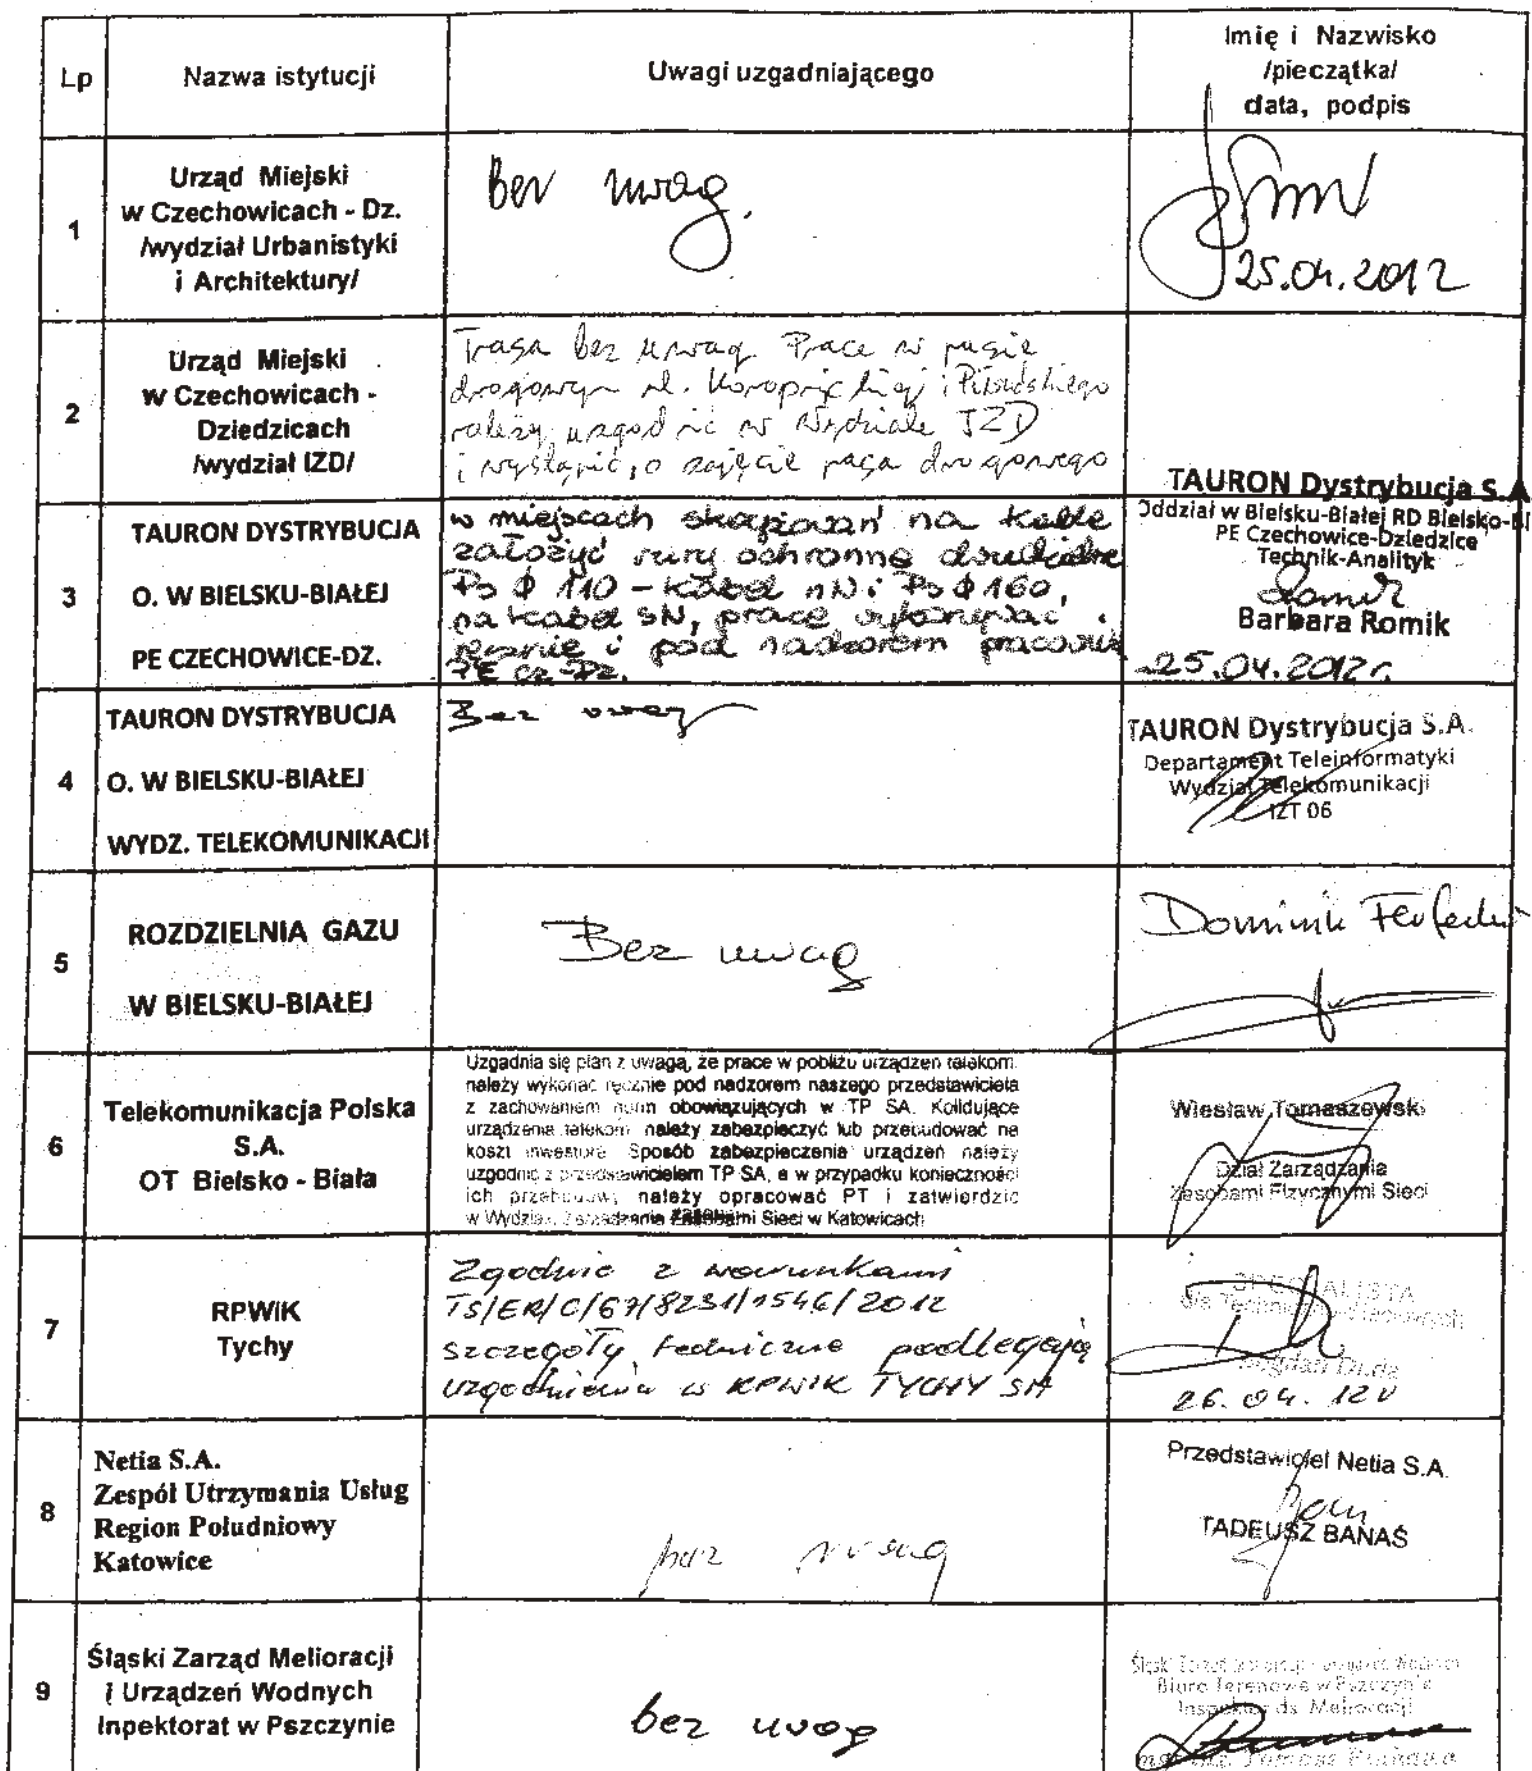 Lp
Nazwa istytucji
Uwagi uzgadniającego
Imię i Nazwisko
/pieczątka/
data, podpis
1
Urząd Miejski
w Czechowicach - Dz.
/wydział Urbanistyki
i Architektury/
Bez uwag.
25.04.2012
2
Urząd Miejski
w Czechowicach -
Dziedzicach
/wydział IZD/
Trasa bez uwag. Prace w pasie
drogowym ul. i Piłsudskiego
należy uzgodnić w Wydziale IZD
i wystąpić, o zajęcie pasa drogowego
3
TAURON DYSTRYBUCJA
O. W BIELSKU-BIAŁEJ
PE CZECHOWICE-DZ.
w miejscach skrzyżowań na kable
założyć rury ochronne dwudzielne
Ps ϕ 110 - kabel nN i Ps ϕ 160,
na kabel SN, prace wykonywać
ręcznie i pod nadzorem pracownika
PE Cz-Dz.
TAURON Dystrybucja S.A
Oddział w Bielsku-Białej RD Bielsko-Bi
PE Czechowice-Dziedzice
Technik-Analityk
Barbara Romik
25.04.2012r.
4
TAURON DYSTRYBUCJA
O. W BIELSKU-BIAŁEJ
WYDZ. TELEKOMUNIKACJI
Bez uwag
TAURON Dystrybucja S.A.
Departament Teleinformatyki
Wydział Telekomunikacji
IZT 06
5
ROZDZIELNIA GAZU
W BIELSKU-BIAŁEJ
Bez uwag
Dominik
6
Telekomunikacja Polska
S.A.
OT Bielsko - Biała
Uzgadnia się plan z uwagą, że prace w pobliżu urządzeń telekom.
należy wykonać ręcznie pod nadzorem naszego przedstawiciela
z zachowaniem norm obowiązujących w TP SA. Kolidujące
urządzenia telekom. należy zabezpieczyć lub przebudować na
koszt inwestora. Sposób zabezpieczenia urządzeń należy
uzgodnić z przedstawicielem TP SA, a w przypadku konieczności
ich przebudowy należy opracować PT i zatwierdzić
w Wydziale Zarządzania Zasobami Sieci w Katowicach
Wiesław Tomaszewski
Dział Zarządzania
Zasobami Fizycznymi Sieci
7
RPWiK
Tychy
Zgodnie z warunkami
TS/ER/C/67/8231/1546/2012
szczegóły techniczne podlegają
uzgodnieniu w RPWIK TYCHY SA
SPECJALISTA
Bogdan Duda
26.04.12r
8
Netia S.A.
Zespół Utrzymania Usług
Region Południowy
Katowice
bez uwag
Przedstawiciel Netia S.A.
TADEUSZ BANAŚ
9
Śląski Zarząd Melioracji
i Urządzeń Wodnych
Inpektorat w Pszczynie
bez uwag
Śląski Zarząd Melioracji i Urządzeń Wodnych
Biuro Terenowe w Pszczynie
Inspektor ds. Melioracji
mgr inż. Tomasz